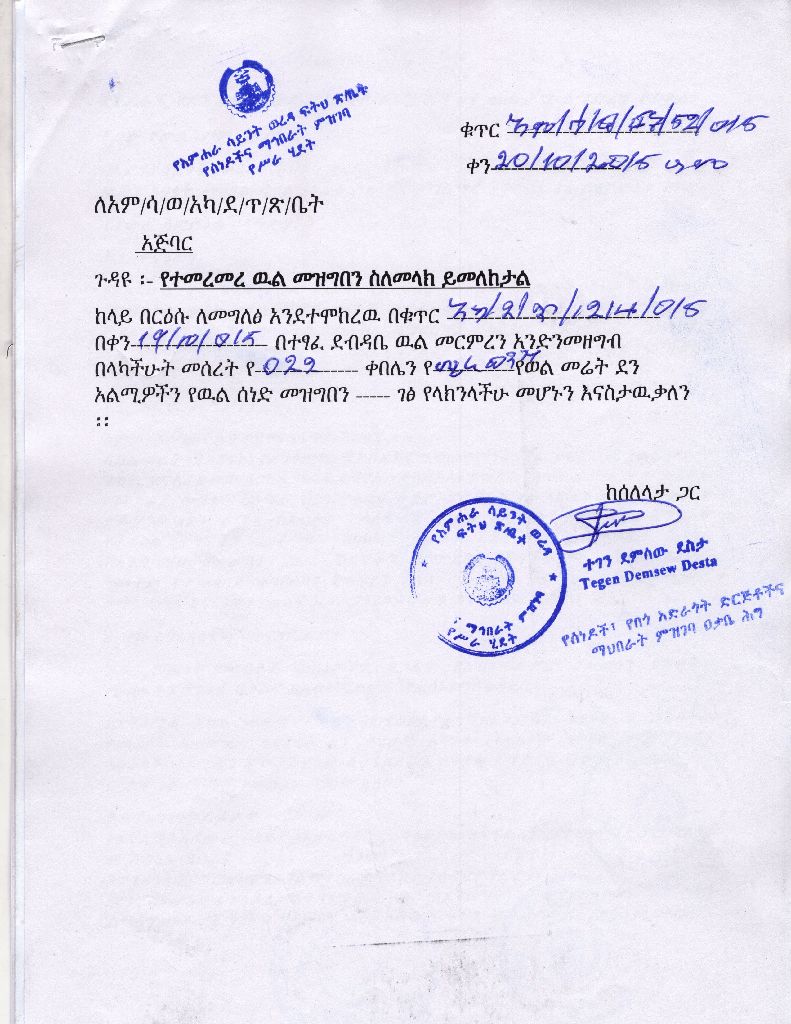 የአምሐራ ሳይንት ወረዳ ፍትህ ጽ/ቤት
የሰነዶችና ማኅበራት ምዝገባ
የሥራ ሂደት
ቁጥር
ቀን 20/10/2015
ለአም/ሳ/ወ/አካ/ደ/ጥ/ጽ/ቤት
አጅባር
ጉዳዩ ፡- የተመረመረ ዉል መዝግበን ስለመላክ ይመለከታል
ከላይ በርዕሱ ለመግለፅ እንደተሞከረዉ በቁጥር
በቀን 19/10/015 በተፃፈ ደብዳቤ ዉል መርምረን እንድንመዘግብ
በላካችሁት መሰረት የ 029 ቀበሌን የ የወል መሬት ደን
አልሚዎችን የዉል ሰነድ መዝግበን ----- ገፅ የላክንላችሁ መሆኑን እናስታዉቃለን
፡፡
ከሰለላታ ጋር
የአምሐራ ሳይንት ወረዳ
ፍትህ ጽ/ቤት
ማኅበራት ምዝገባ
የሥራ ሂደት
ተገን ደምሰው ደስታ
Tegen Demsew Desta
የሰነዶች፣ የበጎ አድራጎት ድርጅቶችና
ማህበራት ምዝገባ ዐቃቤ ሕግ